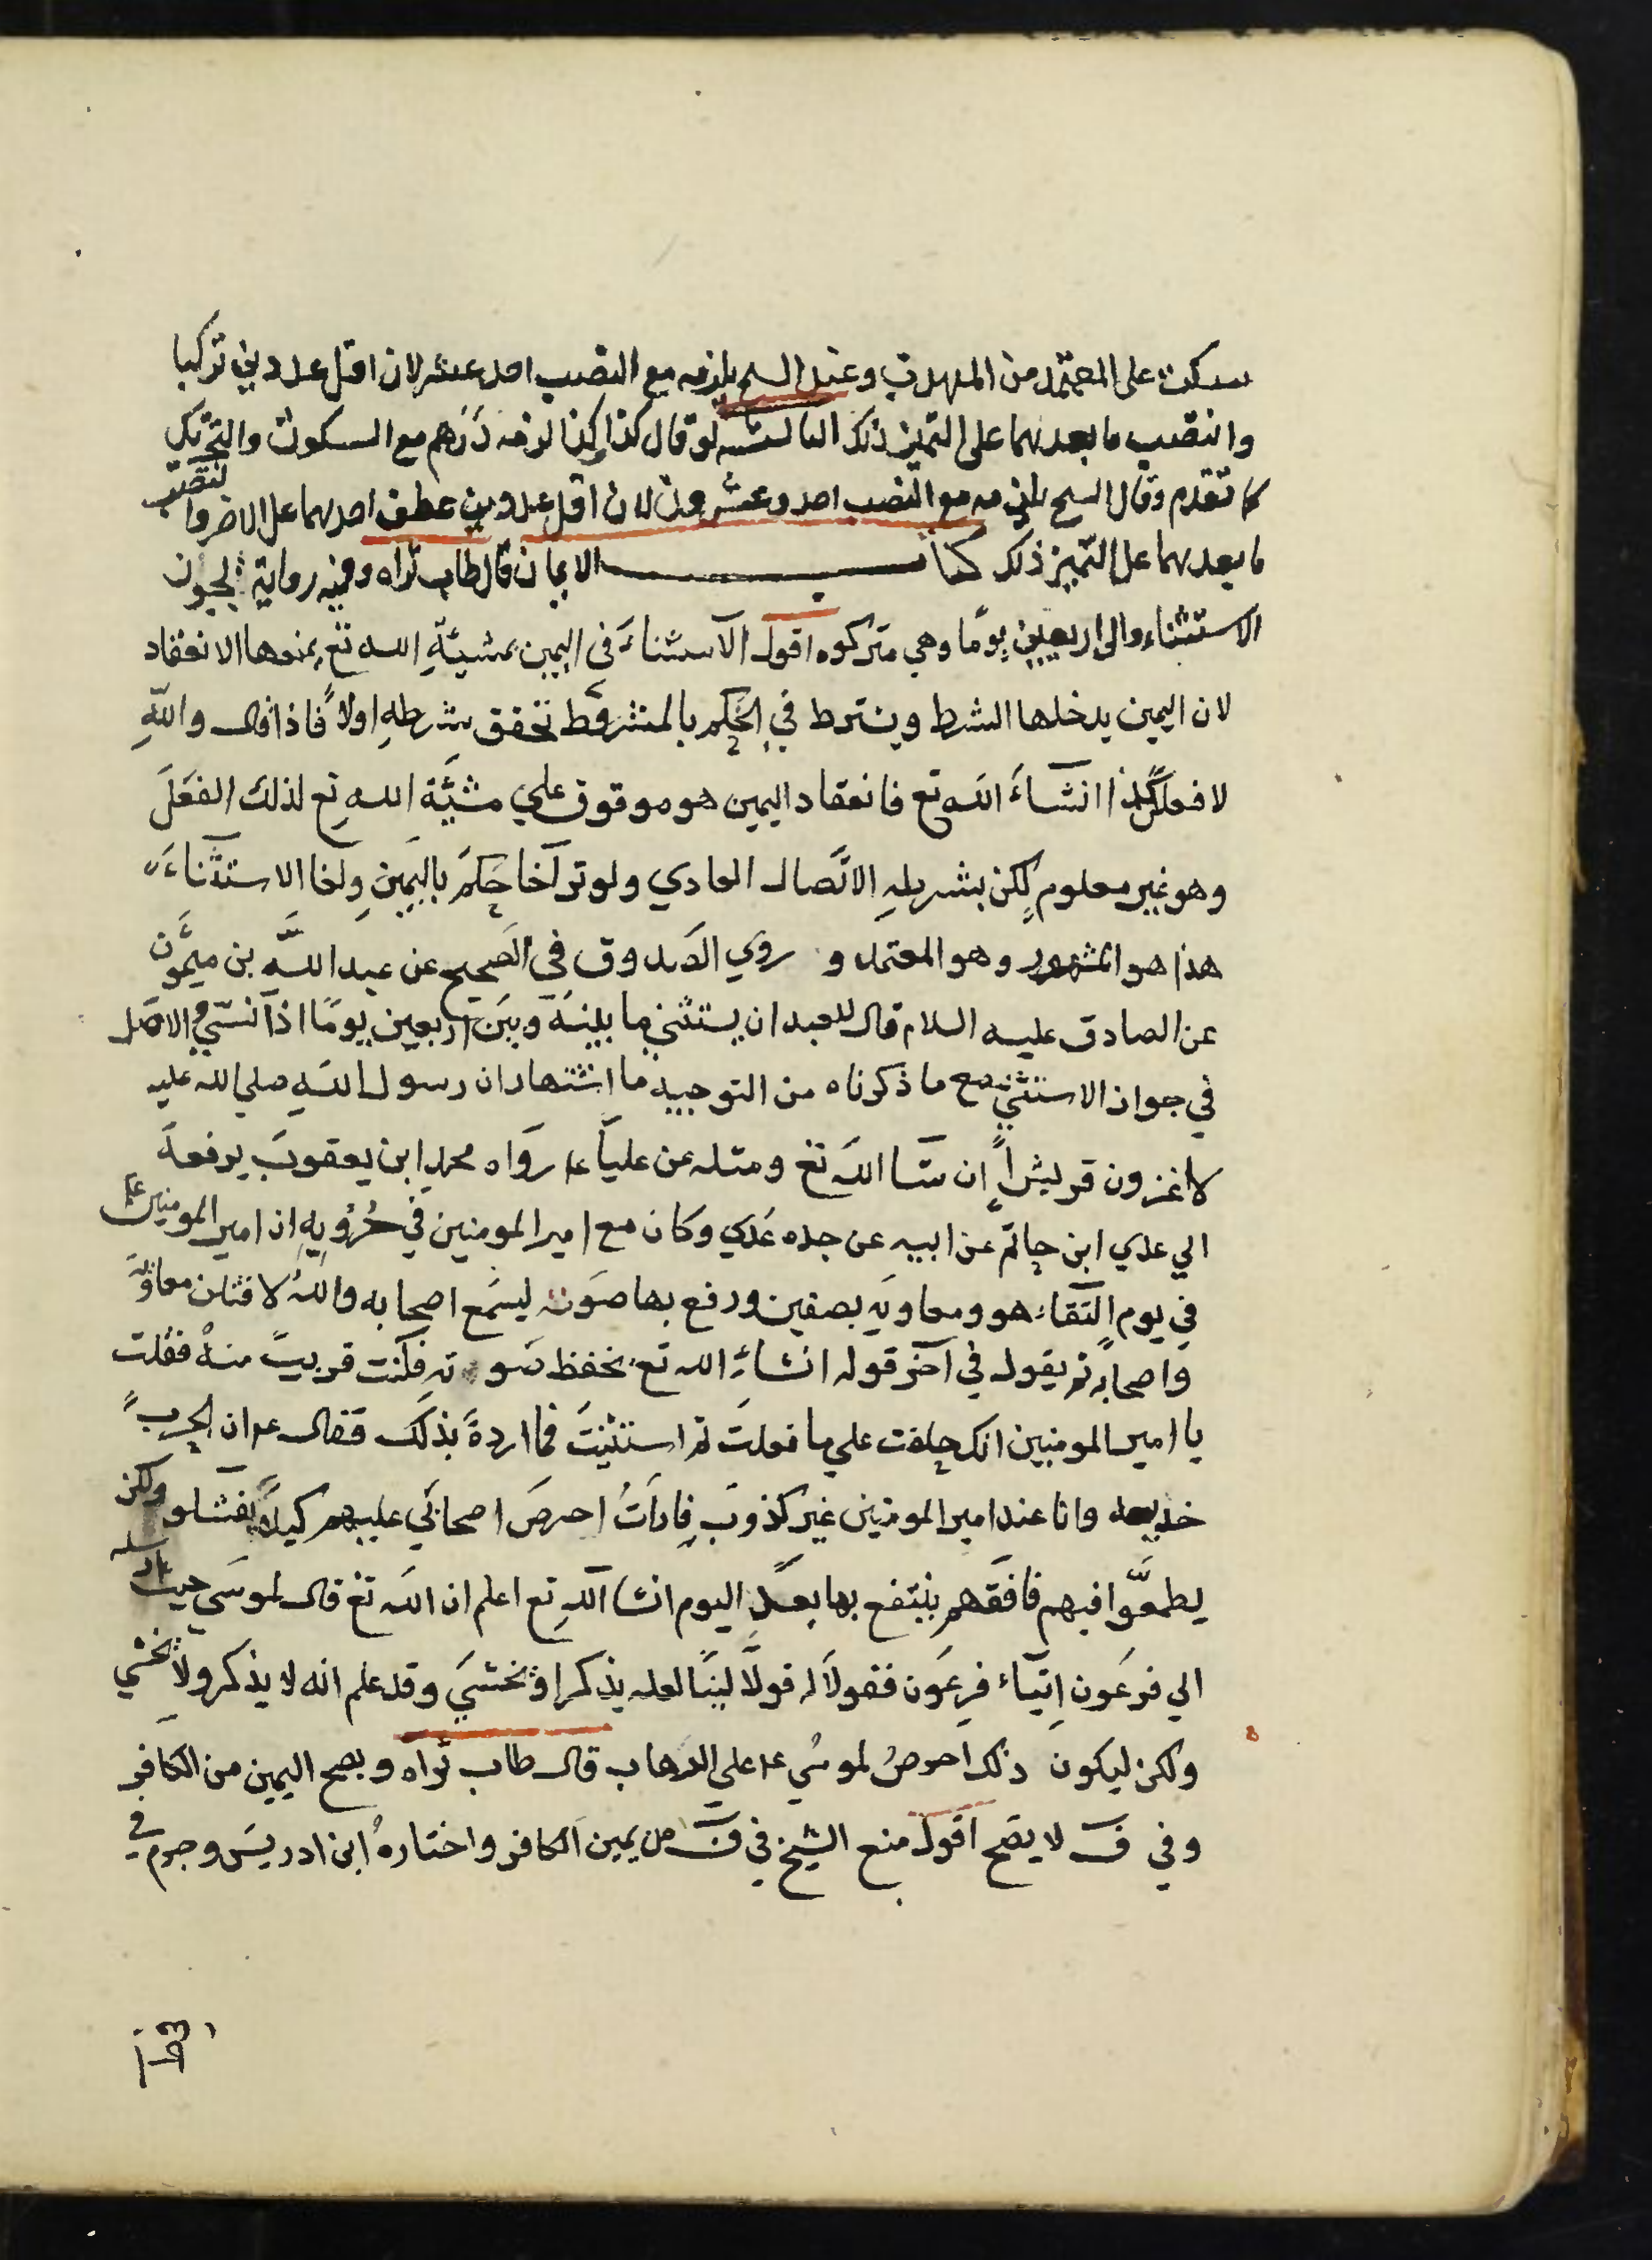 سكت على المعتمد من المهدب وعند السح يلزمه مع النصب احد عشر لان اقل عددين تركبا
وانتصب ما بعدهما على التميز ذلك الثالث لو قال كذا كذا لزمه درهم مع السكوت والتحريك
كما تقدم وقال السح يلزمه مع النصب احد وعشرون لان اقل عددين عطف احدهما على الاخر وانتصب
ما بعدهما على التميز ذلك كتاب الايمان قال طاب ثراه وفيه رواية بجواز
الاستثناء والى اربعين يومًا وهي متركوه اقول الاستثناء في اليمين بمشيّةِ الله تع يمنعها الانعقاد
لان اليمين يدخلها الشرط ويشترط في الحكم بالمشروط تحقق شرطهِ اولاً فاذا قال واللهِ
لافعلن كذا انشاءَ الله تع فانعقاد اليمين هو موقوف علي مشيَّة اللهِ تع لذلك الفعَلَ
وهو غير معلوم لكن بشرطهِ الاتّصال العادي ولو تراخا حكمَ باليَمينِ ولغا الاستثناءَ
هذا هو المشهور وهو المعتمد و روي الصَدوق في الصَحيح عن عبد اللَّه بن ميمَون
عن الصادق عليه السلام قال للعبد ان يستثني ما بينهَ وبيَن اربعين يومًا اذا نسَي والاصَل
في جواز الاستثني مع ما ذكرناه من التوجيه ما اشتهار ان رسول اللهِ صلي الله عليه
لاغزون قريشاً ان شا الله تع ومثله عن علياً عه رواه محمد ابن يعقوبَ يرفعهَ
الي عدي ابن حاتم عن ابيه عن جده عَدي وكان مع امير المومنين في حُرُوبِهِ ان امير المومنين عه
في يوم التقاء هو ومعاويَه بصفين ورفع بها صَوته ليسمَع اصحابه واللهُ لاقتلن معاويَة
واصحابه ثم يقول في اخر قوله انشاءَ الله تع يخفظ صَو ته فكنت قريبً منهُ فقلت
يا امير المومنين انك حلفت علي ما فعلتَ ثم استثنيتَ فما اردةَ بذلك فقال عه ان الحربً
خديعه وانا عند امير المومنين غير كذوبَ فارَدَتُ احرصَ اصحابَي عليهم كيلا يفشلو ولكن
يطمعَّوا فيهم فافقههم ينتفع بها بعدَ اليوم انشا اللهِ تع اعلم ان الله تع قال لموسَي حيث ارسله
الي فرعَون اِتيَاء فرِعَون فقولاَ له قولاً لينًا لعله يذكر او يخشيَ وقد علم انه لا يذكر ولا يخشي
ولكن ليكون ذلك احرصُ لموسُي عه علي الذهاب قال طاب ثراه ويصح اليمين من الكافرِ
وفي ف لا يصَح اقول منع الشيخ في ف من يمين الكافر واختارهُ ابن ادريسَ وجزم في